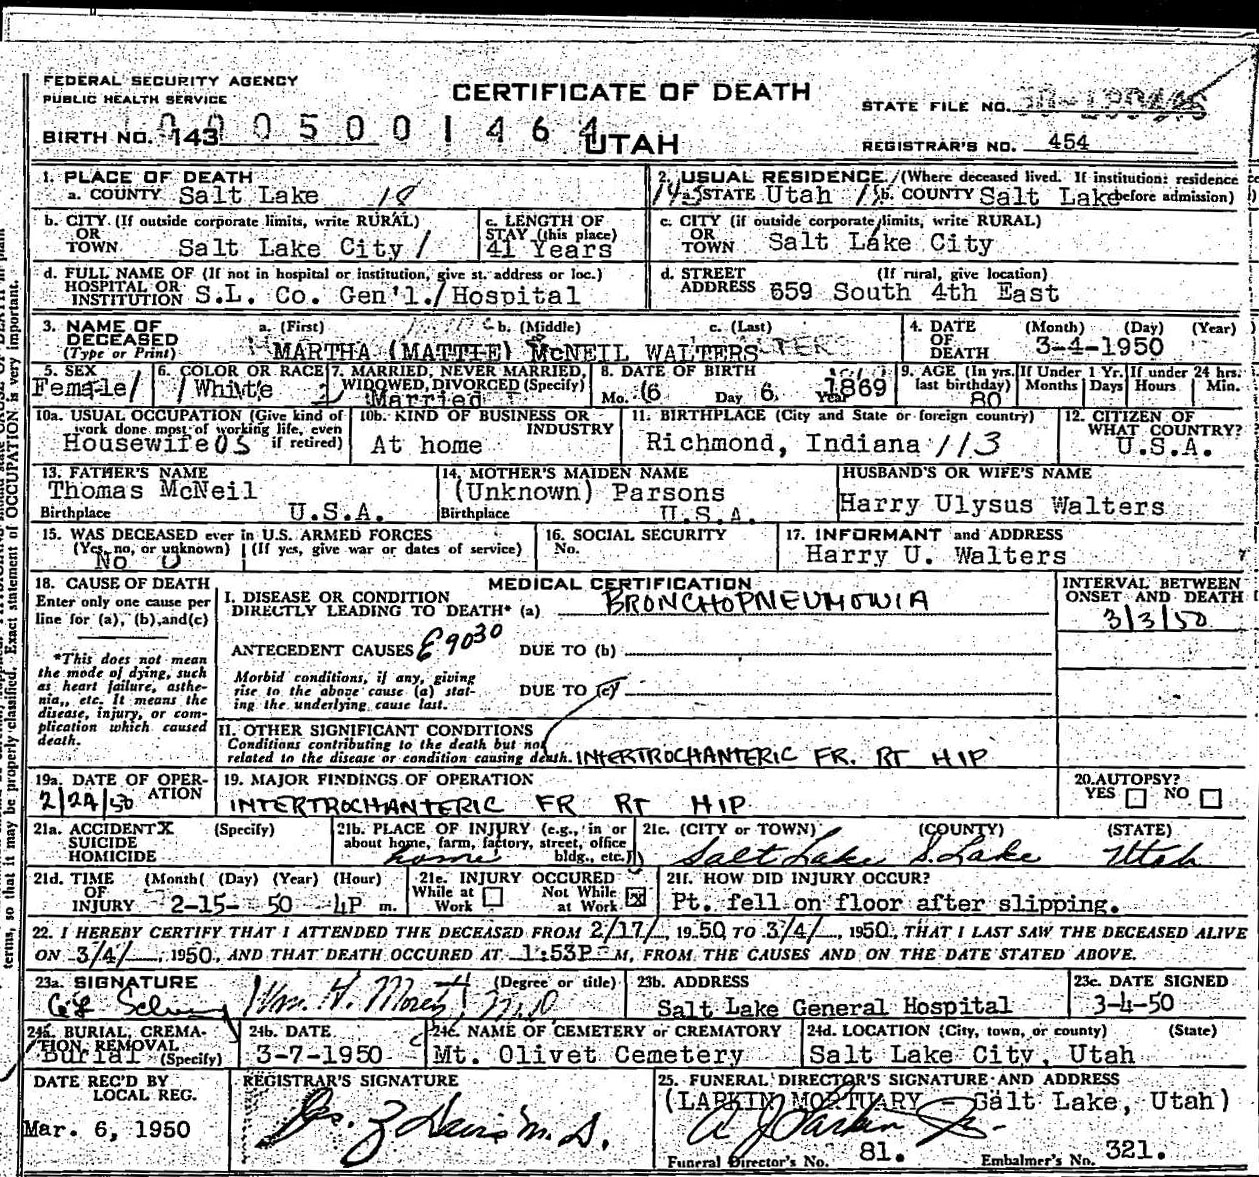 FEDERAL SECURITY AGENCY
PUBLIC HEALTH SERVICE
CERTIFICATE OF DEATH
STATE FILE NO.
BIRTH NO. 143
0005001464
UTAH
REGISTRAR'S NO. 454
1. PLACE OF DEATH
a. COUNTY Salt Lake 18
2. USUAL RESIDENCE (Where deceased lived. If institution: residence before admission)
a. STATE Utah b. COUNTY Salt Lake
b. CITY (If outside corporate limits, write RURAL)
OR TOWN Salt Lake City /
c. LENGTH OF STAY (this place)
41 Years
c. CITY (if outside corporate limits, write RURAL)
OR TOWN Salt Lake City
d. FULL NAME OF (If not in hospital or institution, give st. address or loc.)
HOSPITAL OR INSTITUTION S.L. Co. Gen'l. Hospital
d. STREET ADDRESS (If rural, give location)
659 South 4th East
3. NAME OF DECEASED (Type or Print)
a. (First) b. (Middle) c. (Last)
MARTHA (MATTIE) McNEIL WALTERS
4. DATE OF DEATH (Month) (Day) (Year)
3-4-1950
5. SEX
Female
6. COLOR OR RACE
White
7. MARRIED, NEVER MARRIED, WIDOWED, DIVORCED (Specify)
Married
8. DATE OF BIRTH
Mo. 6 Day 6 Year 1869
9. AGE (In yrs. last birthday)
80
If Under 1 Yr. Months Days
If under 24 hrs. Hours Min.
10a. USUAL OCCUPATION (Give kind of work done most of working life, even if retired)
Housewife 05
10b. KIND OF BUSINESS OR INDUSTRY
At home
11. BIRTHPLACE (City and State or foreign country)
Richmond, Indiana 113
12. CITIZEN OF WHAT COUNTRY?
U.S.A.
13. FATHER'S NAME
Thomas McNeil
Birthplace U.S.A.
14. MOTHER'S MAIDEN NAME
(Unknown) Parsons
Birthplace U.S.A.
HUSBAND'S OR WIFE'S NAME
Harry Ulysus Walters
15. WAS DECEASED ever in U.S. ARMED FORCES
(Yes, no, or unknown) (If yes, give war or dates of service)
No 0
16. SOCIAL SECURITY
No.
17. INFORMANT and ADDRESS
Harry U. Walters
18. CAUSE OF DEATH
Enter only one cause per line for (a), (b), and (c)
*This does not mean the mode of dying, such as heart failure, asthenia,, etc. It means the disease, injury, or complication which caused death.
MEDICAL CERTIFICATION
I. DISEASE OR CONDITION
DIRECTLY LEADING TO DEATH* (a) BRONCHOPNEUMONIA
INTERVAL BETWEEN ONSET AND DEATH
3/3/50
ANTECEDENT CAUSES E9030 DUE TO (b)
Morbid conditions, if any, giving rise to the above cause (a) stating the underlying cause last.
DUE TO (c)
II. OTHER SIGNIFICANT CONDITIONS
Conditions contributing to the death but not related to the disease or condition causing death. INTERTROCHANTERIC FR. RT HIP
19a. DATE OF OPERATION
2/24/50
19. MAJOR FINDINGS OF OPERATION
INTERTROCHANTERIC FR RT HIP
20. AUTOPSY?
YES NO
21a. ACCIDENT X (Specify)
SUICIDE
HOMICIDE
21b. PLACE OF INJURY (e.g., in or about home, farm, factory, street, office bldg., etc.)
home
21c. (CITY or TOWN) (COUNTY) (STATE)
Salt Lake S. Lake Utah
21d. TIME OF INJURY (Month) (Day) (Year) (Hour)
2-15- 50 4P m.
21e. INJURY OCCURED
While at Work Not While at Work X
21f. HOW DID INJURY OCCUR?
Pt. fell on floor after slipping.
22. I HEREBY CERTIFY THAT I ATTENDED THE DECEASED FROM 2/17/, 1950, TO 3/4/, 1950, THAT I LAST SAW THE DECEASED ALIVE
ON 3/4/, 1950, AND THAT DEATH OCCURED AT 1:53P M, FROM THE CAUSES AND ON THE DATE STATED ABOVE.
23a. SIGNATURE (Degree or title)
Wm. H. M.D.
23b. ADDRESS
Salt Lake General Hospital
23c. DATE SIGNED
3-4-50
24a. BURIAL, CREMATION, REMOVAL (Specify)
Burial
24b. DATE
3-7-1950
24c. NAME OF CEMETERY or CREMATORY
Mt. Olivet Cemetery
24d. LOCATION (City, town, or county) (State)
Salt Lake City, Utah
DATE REC'D BY LOCAL REG.
Mar. 6, 1950
REGISTRAR'S SIGNATURE
25. FUNERAL DIRECTOR'S SIGNATURE AND ADDRESS
(LARKIN MORTUARY - Salt Lake, Utah)
Larkin Jr.
Funeral Director's No. 81. Embalmer's No. 321.